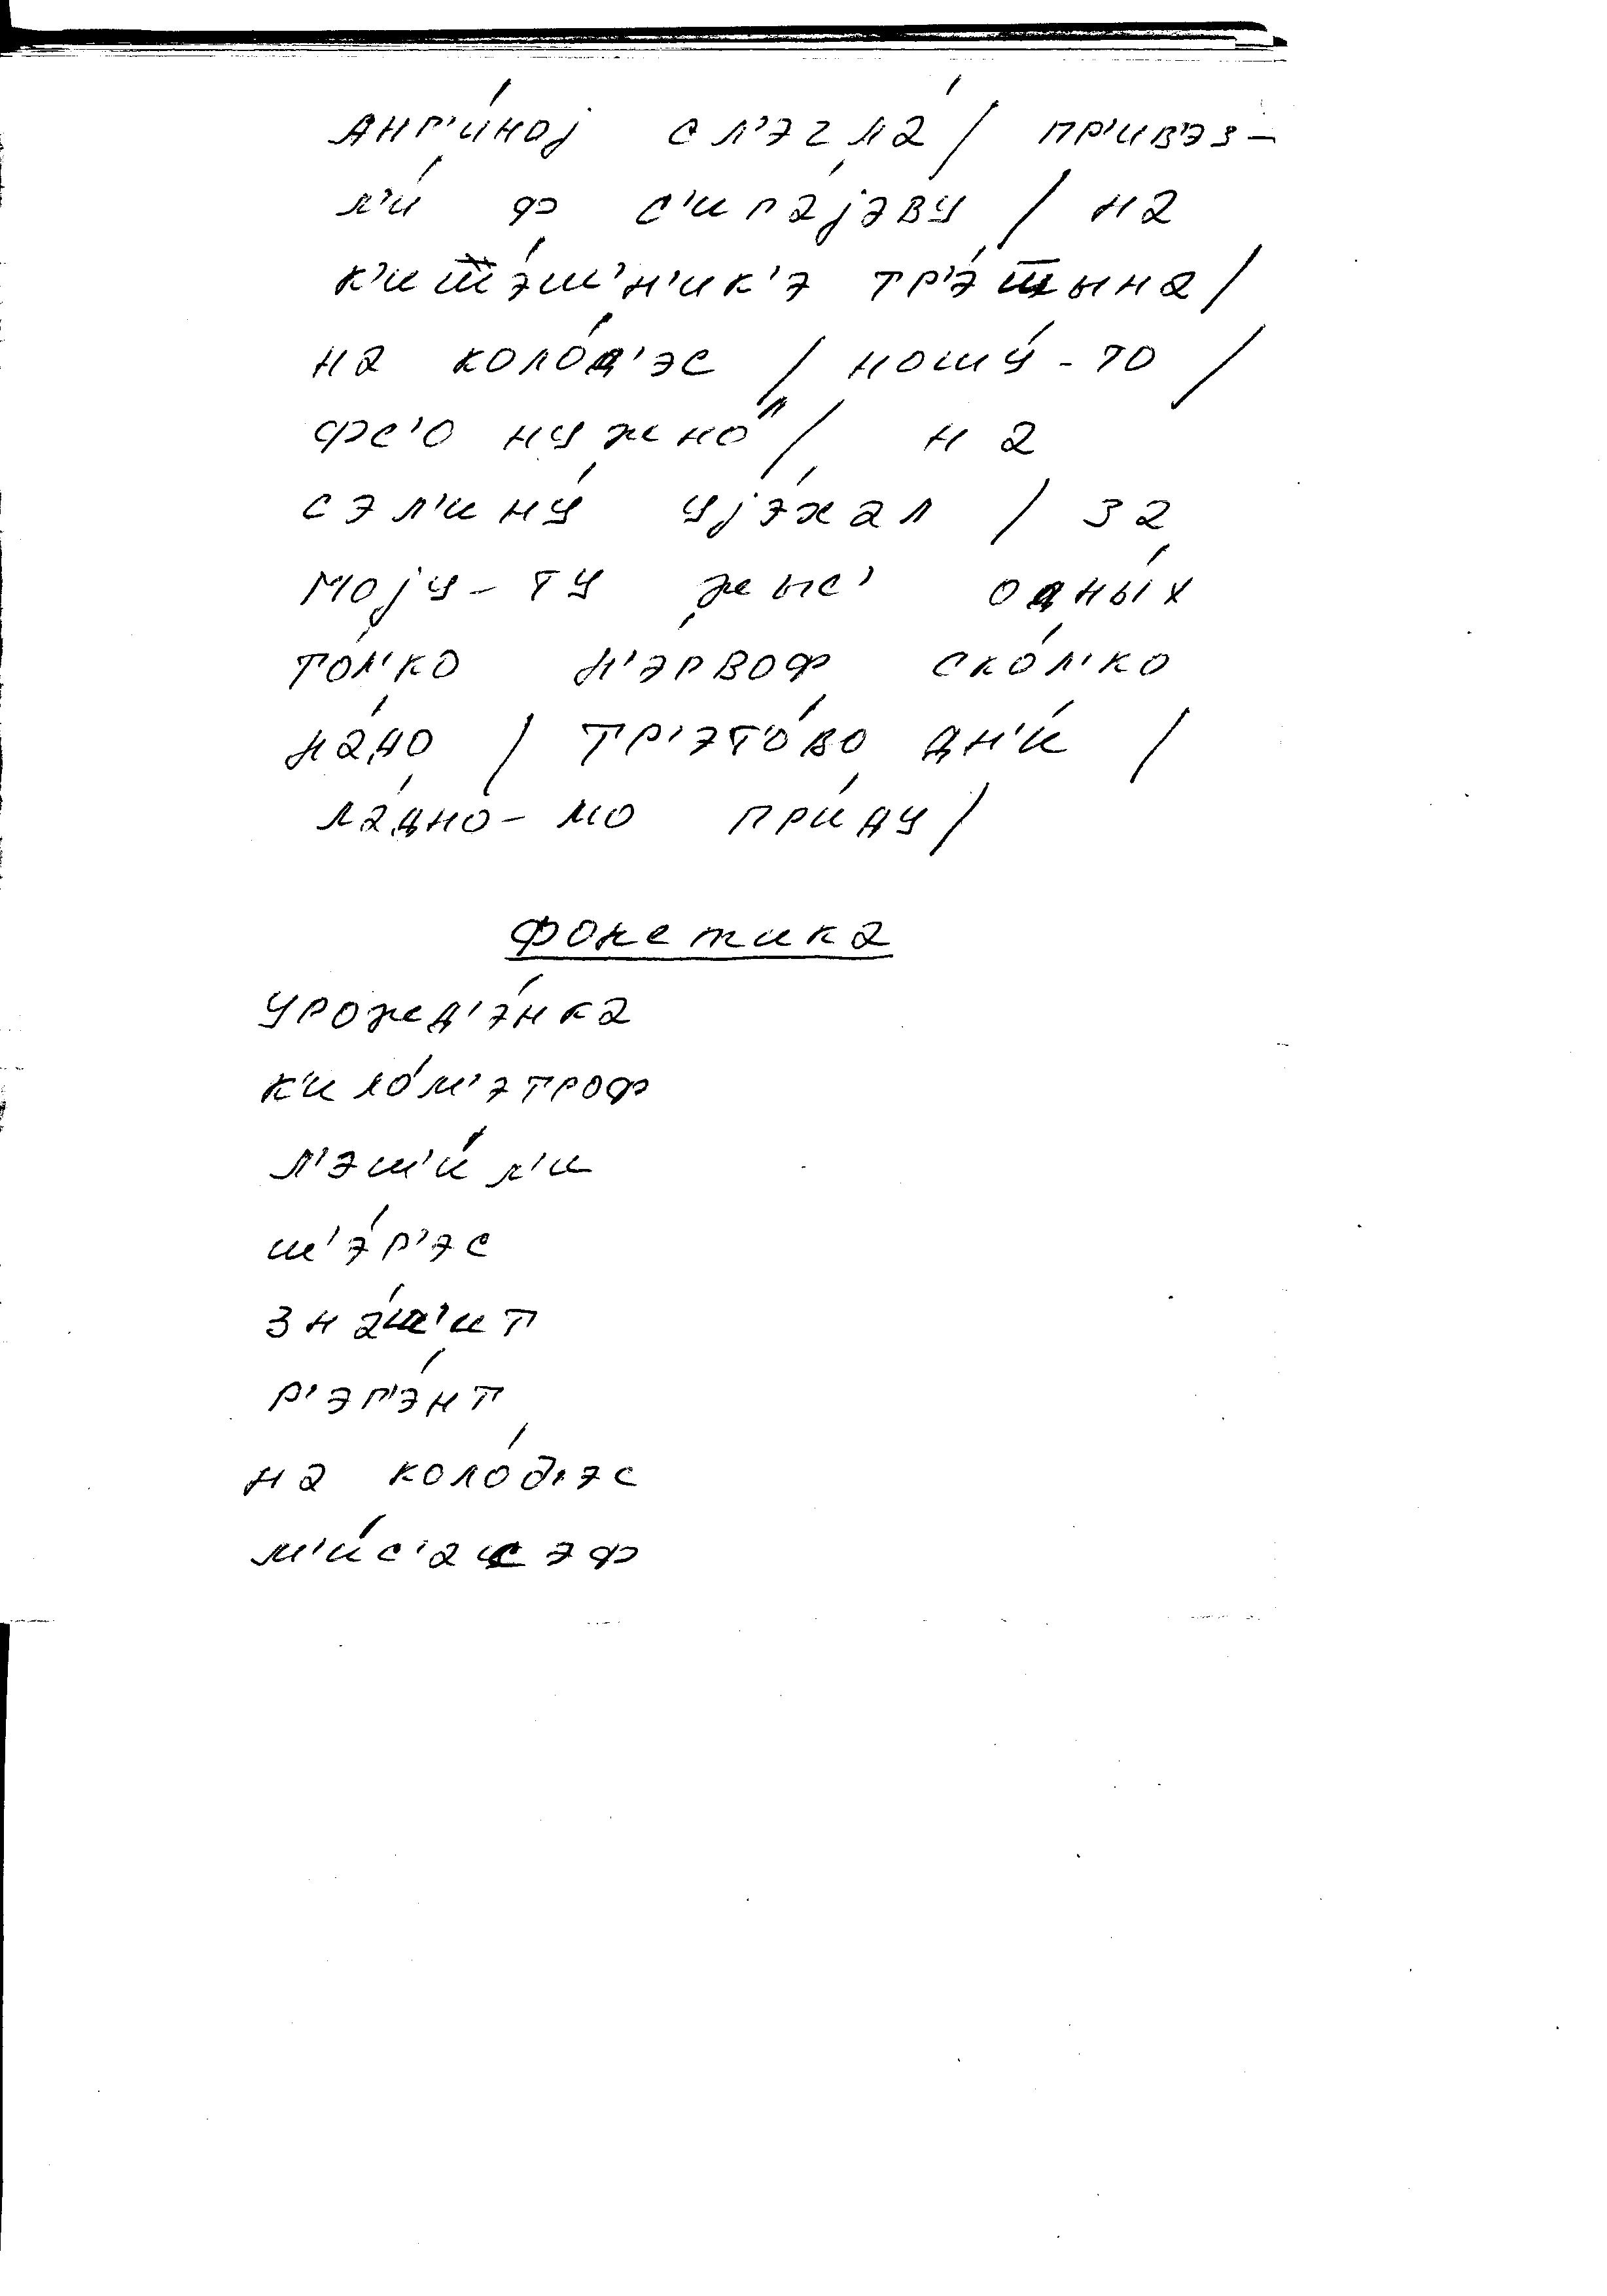 анг'и́ноj сл'эгла́ / пр'ив'эз-
л'и́ ф с'ига́jэву / на
к'ит̅э́ш'н'ик'э тр'э́т̅ына /
на коло́д'эс / ношу́-то /
фс'о нужно" / на
сэл'ину́ уjэ́хал / за
моjу-ту жыс' одны́х
то́л'ко н'э́рвоф ско́л'ко
на́до / тр'это́во дн'и́ /
ла́дно-мо приду́ /
Фонетика
урожд'э́нка
к'ило́м'этроф
л'эш'и́л'и
ш'э́р'эс
зна́ш'ит
р'эг'э́нт
на коло́д'эс
м'и́с'ацэф